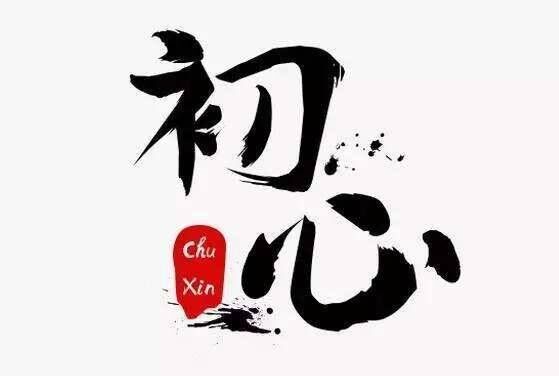 初心
Chu
Xin